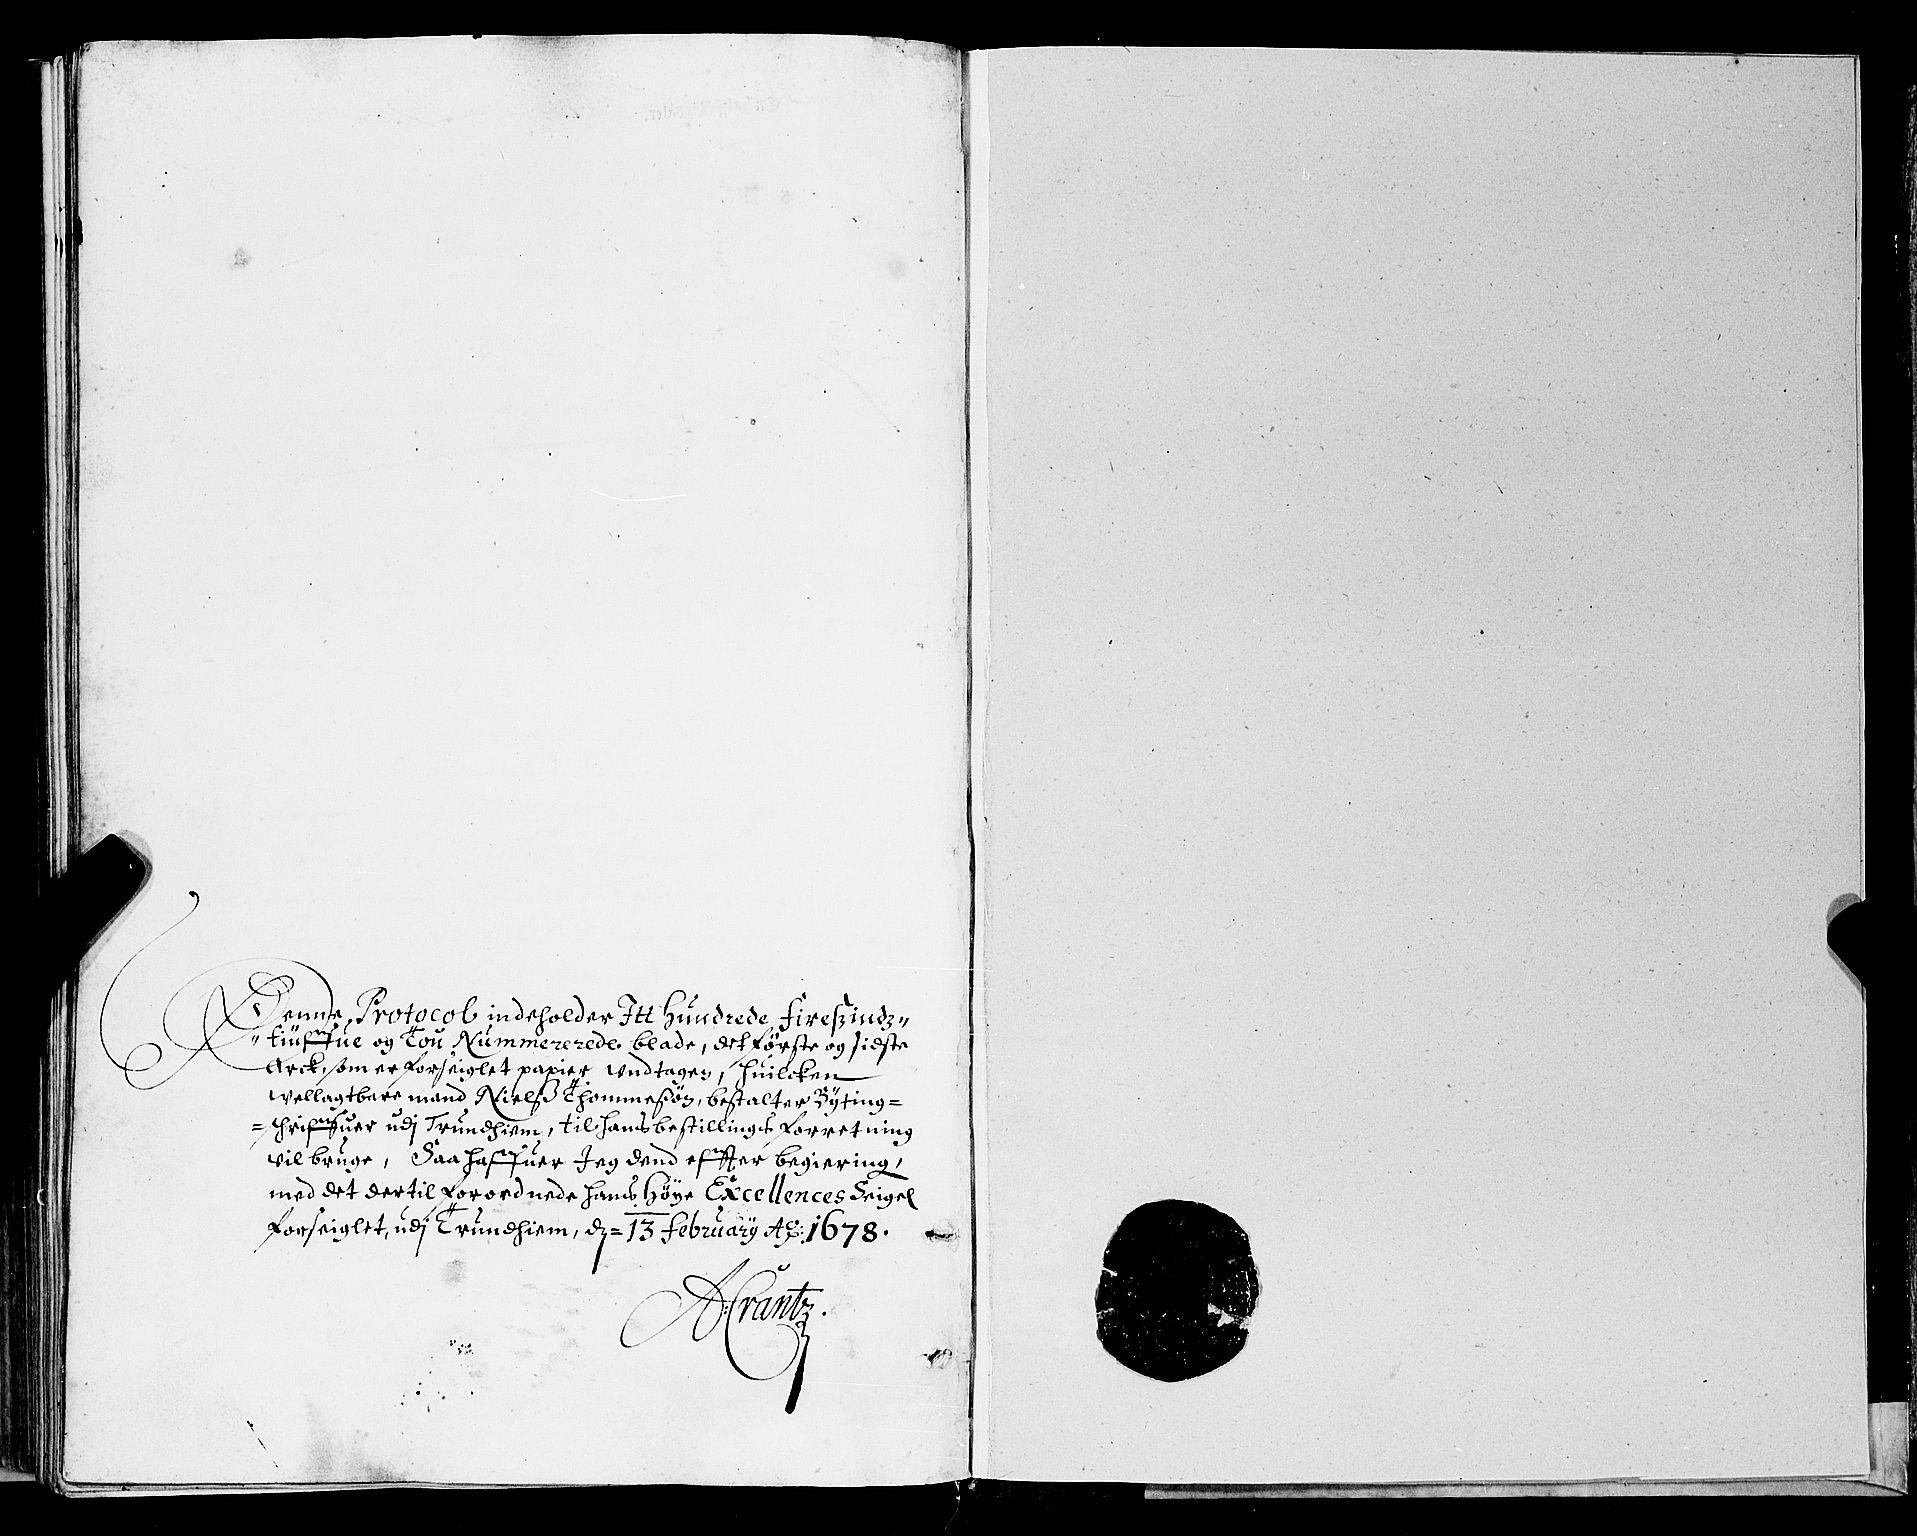 Denne Protocol indeholder Itt Hundrede firesindz„
„tiuffue og Tou Nummererede blade, det første og sidste
Arck, som er forseiglet papier undtagen, huilcken
wellagtbare mand Nielß Thommeßøn, bestalter Byting=
=schriffuer udj Trundhiem, til hans bestillings forretning
vil bruge, Saa haffuer Jeg dend effter begiering,
med det dertil forordnede hans høye Excellences Seigel
forseiglet, udj Trundhiem, dz= 13 february Ao: 1678.
A: Crantz.